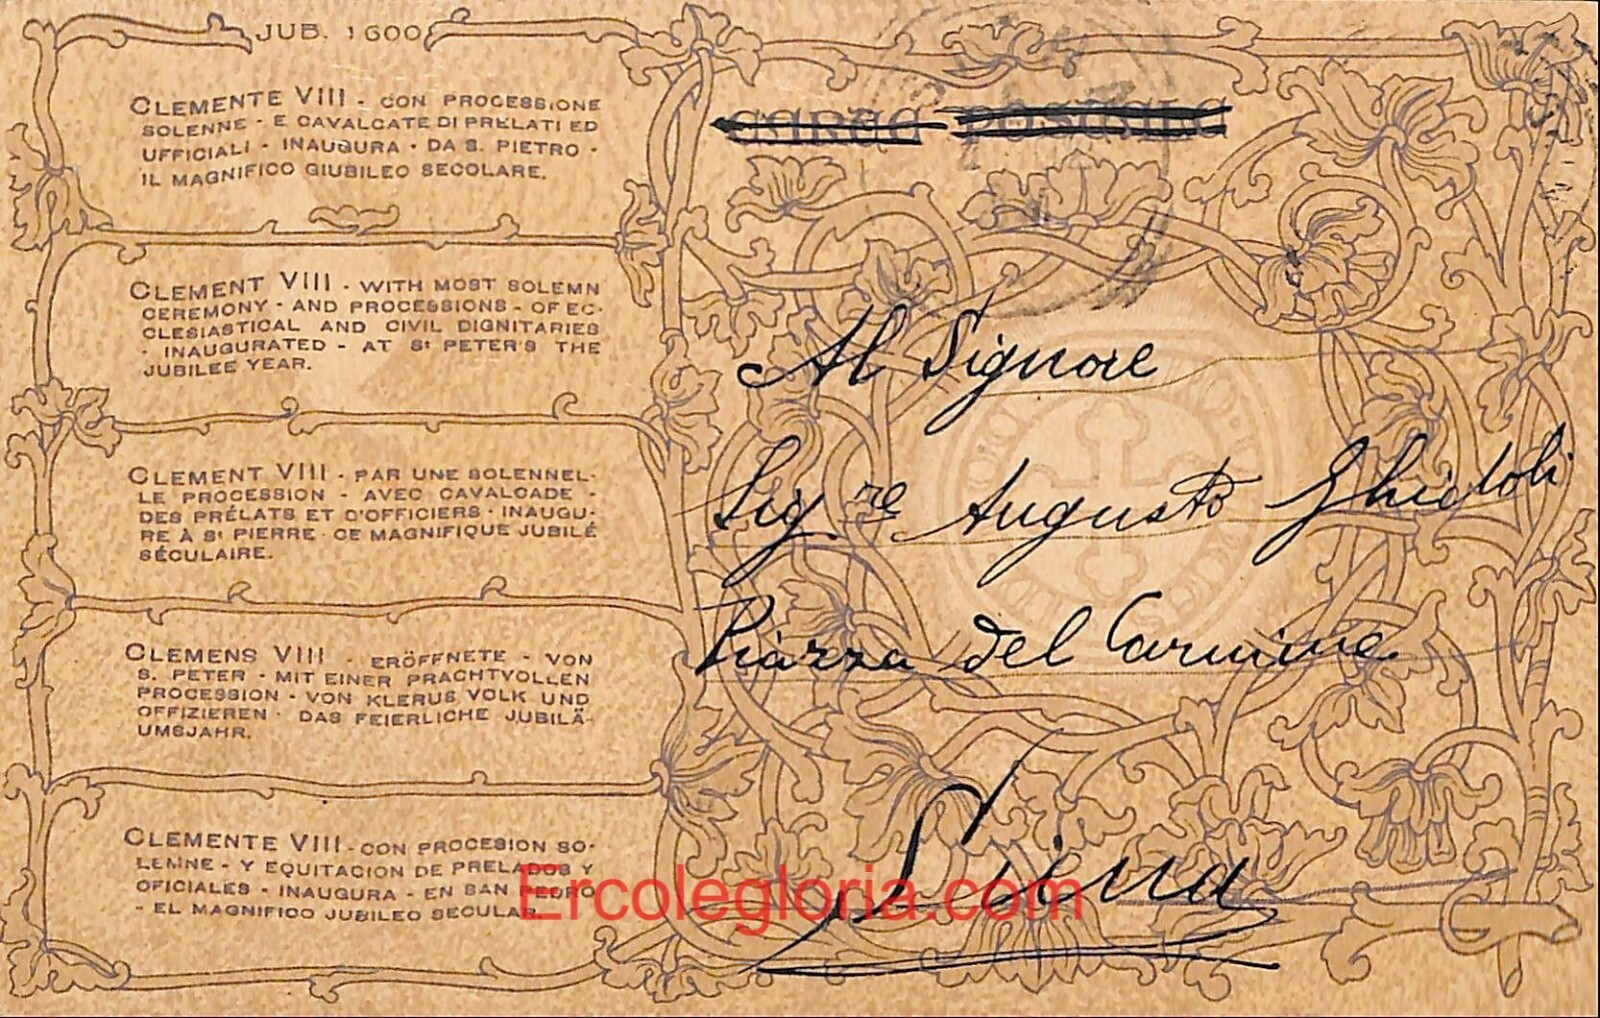 JUB. 1600
CLEMENTE VIII - CON PROCESSIONE
SOLENNE - E CAVALCATE DI PRELATI ED
UFFICIALI - INAUGURA - DA S. PIETRO -
IL MAGNIFICO GIUBILEO SECOLARE.
CLEMENT VIII - WITH MOST SOLEMN
CEREMONY - AND PROCESSIONS - OF EC-
CLESIASTICAL AND CIVIL DIGNITARIES
- INAUGURATED - AT St PETER'S THE
JUBILEE YEAR.
CLEMENT VIII - PAR UNE SOLENNEL-
LE PROCESSION - AVEC CAVALCADE -
DES PRÉLATS ET D'OFFICIERS - INAUGU-
RE À St PIERRE - CE MAGNIFIQUE JUBILÉ
SÉCULAIRE.
CLEMENS VIII - ERÖFFNETE - VON
S. PETER - MIT EINER PRACHTVOLLEN
PROCESSION - VON KLERUS VOLK UND
OFFIZIEREN - DAS FEIERLICHE JUBILÄ-
UMSJAHR.
CLEMENTE VIII - CON PROCESION SO-
LEMNE - Y EQUITACION DE PRELADOS Y
OFICIALES - INAUGURA - EN SAN PEDRO
- EL MAGNIFICO JUBILEO SECULAR.
CARTA POSTALE
Al Signore
Sig.re Augusto Ghidoli
Piazza del Carmine
Siena
Ercolegloria.com